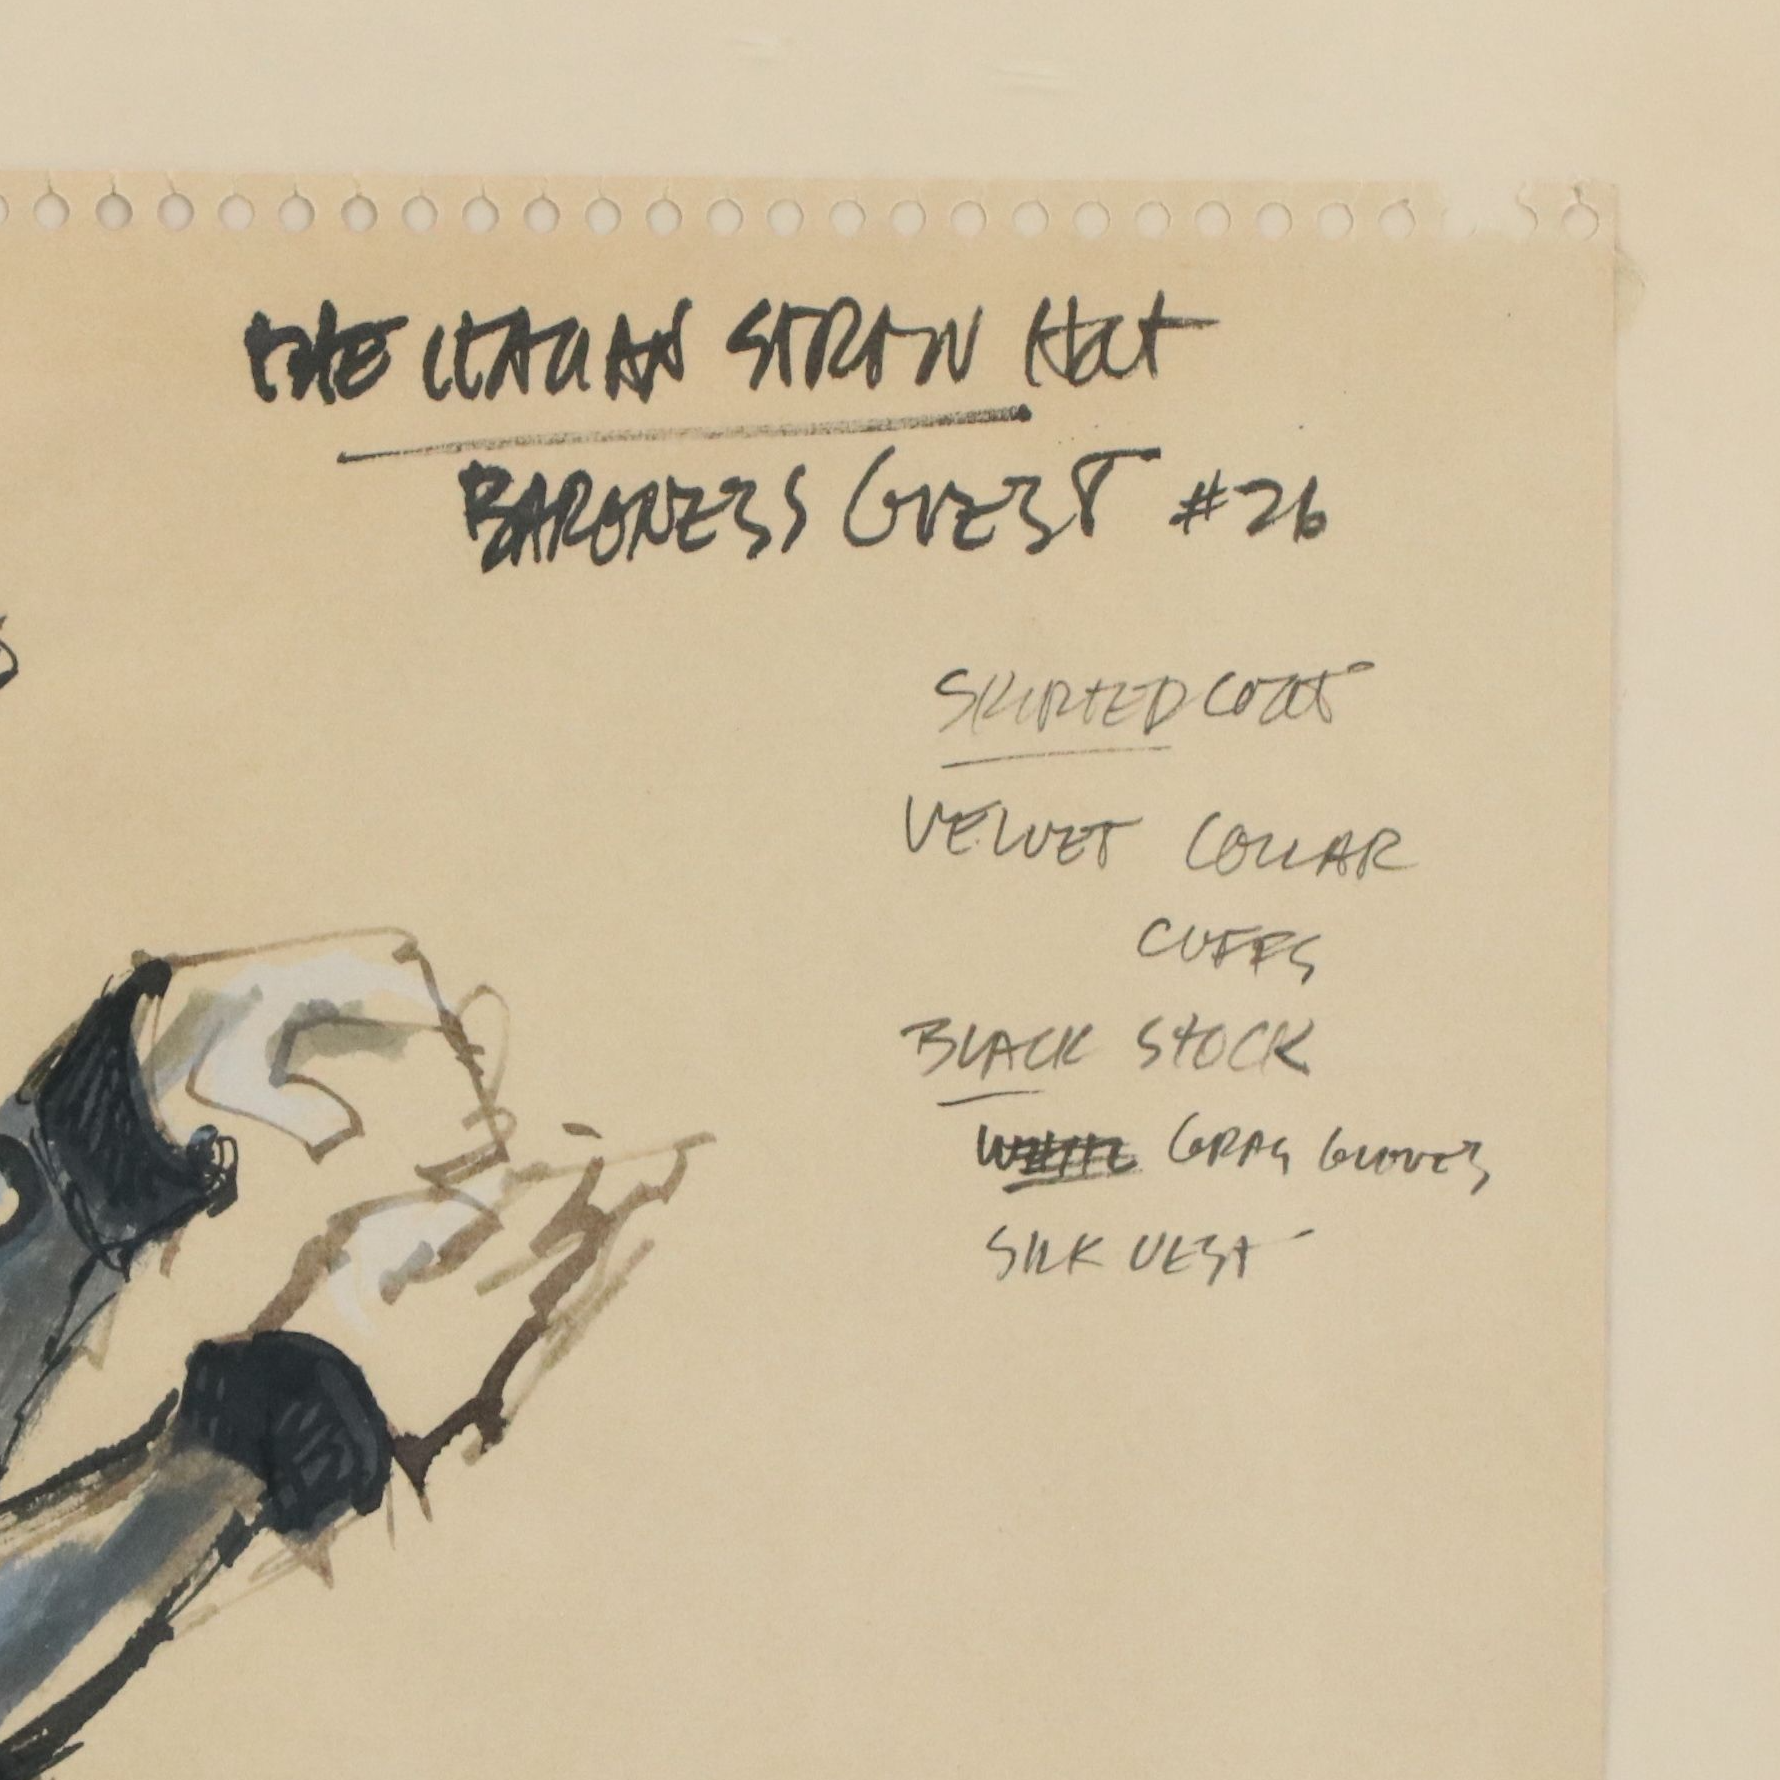 THE ITALIAN STRAW Hat
BARONESS GUEST #26
SKIRTED COAT
VELVET COLLAR
CUFFS
BLACK STOCK
GRAY GLOVES
SILK VEST